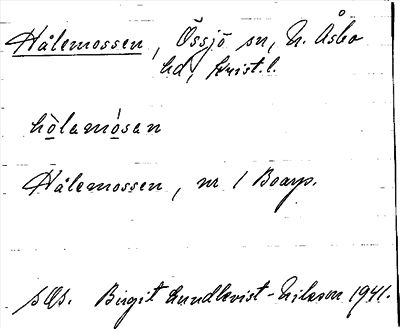 Hålemossen, Össjö sn, N. Åsbo
hd, Krist.l.
hölamósan
Hålemossen, nr 1 Boarp.
sås. Birgit Lundkvist-Nilsson 1941.